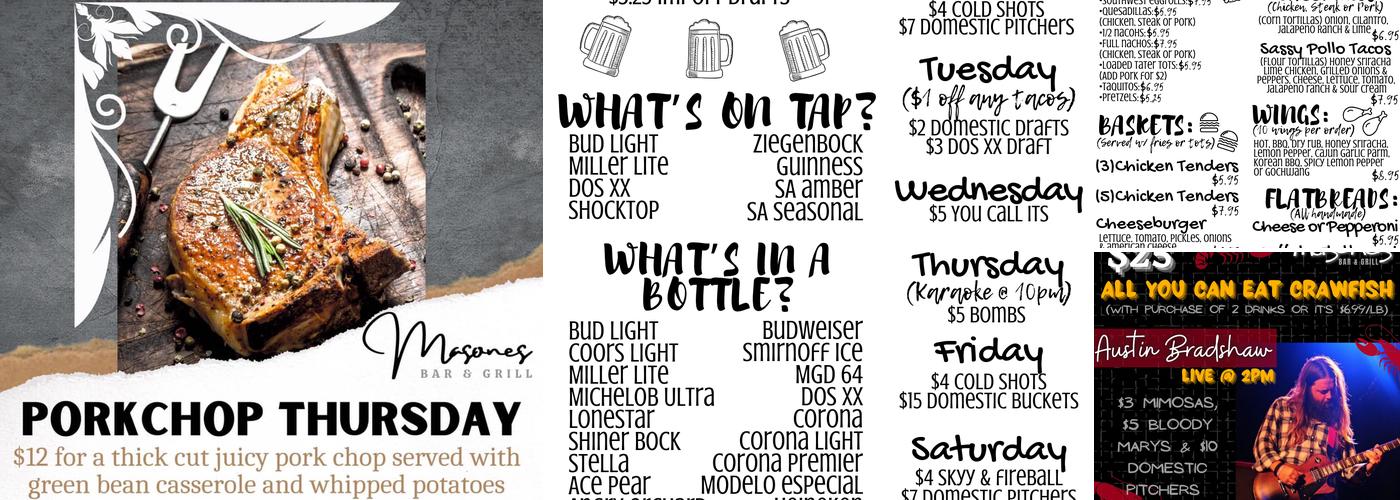 Masones
BAR & GRILL
PORKCHOP THURSDAY
$12 for a thick cut juicy pork chop served with
green bean casserole and whipped potatoes
$5.25 IMPORT DRAFTS
WHAT'S ON TAP?
BUD LIGHT ZIEGENBOCK
MILLER LITE GUINNESS
DOS XX SA AMBER
SHOCKTOP SA SEASONAL
WHAT'S IN A
BOTTLE?
BUD LIGHT BUDWEISER
COORS LIGHT SMIRNOFF ICE
MILLER LITE MGD 64
MICHELOB ULTRA DOS XX
LONESTAR CORONA
SHINER BOCK CORONA LIGHT
STELLA CORONA PREMIER
ACE PEAR MODELO ESPECIAL
ANGRY ORCHARD HEINEKEN
$4 COLD SHOTS
$7 DOMESTIC PITCHERS
Tuesday
($1 off any tacos)
$2 DOMESTIC DRAFTS
$3 DOS XX DRAFT
Wednesday
$5 YOU CALL ITS
Thursday
(Karaoke @ 10pm)
$5 BOMBS
Friday
$4 COLD SHOTS
$15 DOMESTIC BUCKETS
Saturday
$4 SKYY & FIREBALL
$7 DOMESTIC PITCHERS
•SOUTHWEST EGGROLLS:$7.95
•QUESADILLAS:$6.95
(CHICKEN, STEAK OR PORK)
•1/2 NACOHS:$5.95
•FULL NACHOS:$7.95
(CHICKEN, STEAK OR PORK)
•LOADED TATER TOTS:$5.95
(ADD PORK FOR $2)
•TAQUITOS:$6.95
•PRETZELS:$5.25
BASKETS:
(Served w/ fries or tots)
(3)Chicken Tenders
$5.95
(5)Chicken Tenders
$7.95
Cheeseburger
LETTUCE, TOMATO, PICKLES, ONIONS
& AMERICAN CHEESE
(Chicken, Steak or Pork)
(CORN TORTILLAS) ONION, CILANTRO,
JALAPENO RANCH & LIME
$6.95
Sassy Pollo Tacos
(FLOUR TORTILLAS) HONEY SRIRACHA
LIME CHICKEN, GRILLED ONIONS &
PEPPERS, CHEESE, LETTUCE, TOMATO,
JALAPENO RANCH & SOUR CREAM
$7.95
WINGS:
(10 wings per order)
HOT, BBQ, DRY RUB, HONEY SRIRACHA,
LEMON PEPPER, CAJUN GARLIC PARM,
KOREAN BBQ, SPICY LEMON PEPPER
OR GOCHUJANG
$8.95
FLATBREADS:
(All handmade)
Cheese or Pepperoni
$5.95
$25
BAR & GRILL
ALL YOU CAN EAT CRAWFISH
(WITH PURCHASE OF 2 DRINKS OR IT'S $6.99/LB)
Austin Bradshaw
LIVE @ 2PM
$3 MIMOSAS,
$5 BLOODY
MARYS & $10
DOMESTIC
PITCHERS